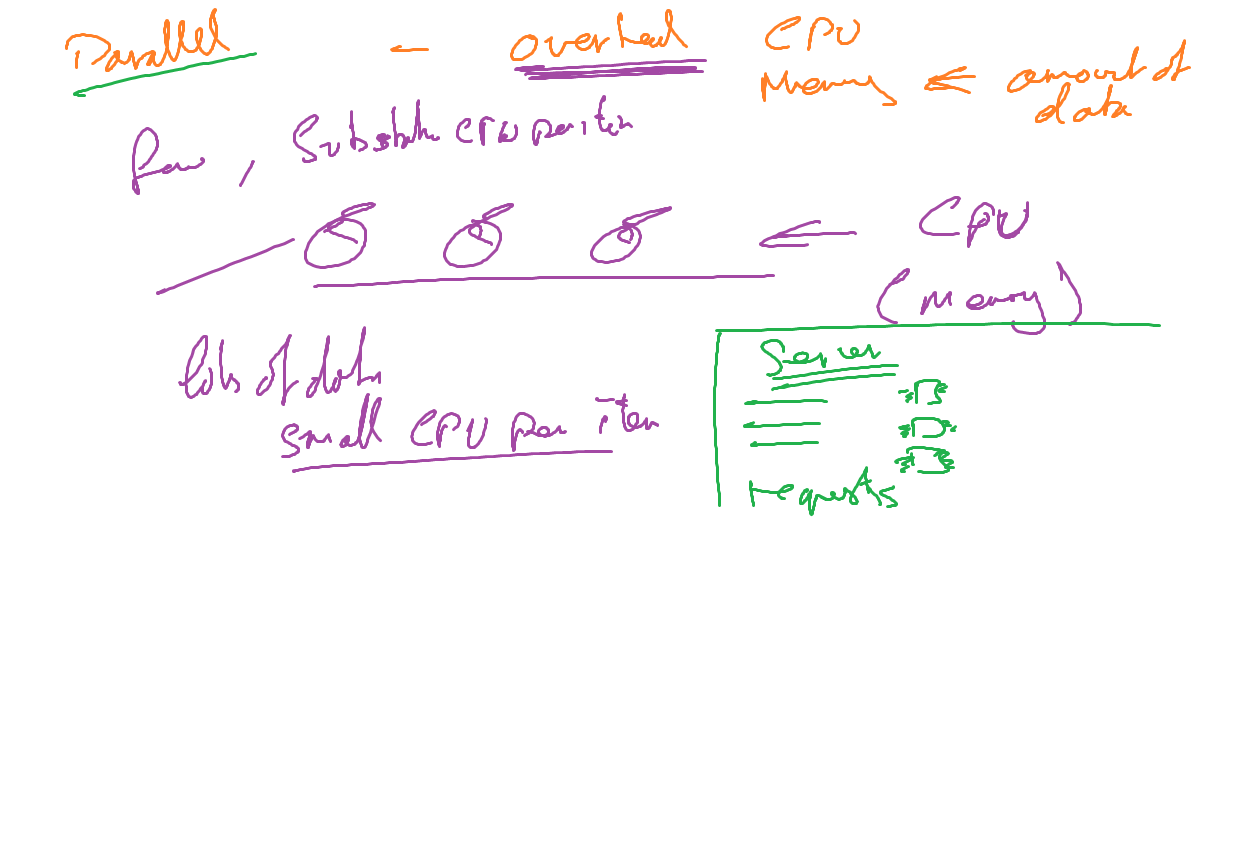 Parallel - overhead CPU
Memory ⇐ amount of
data
few, Substantial CPU per item
⇐ CPU
(Memory)
lots of data
small CPU per item
Server
requests